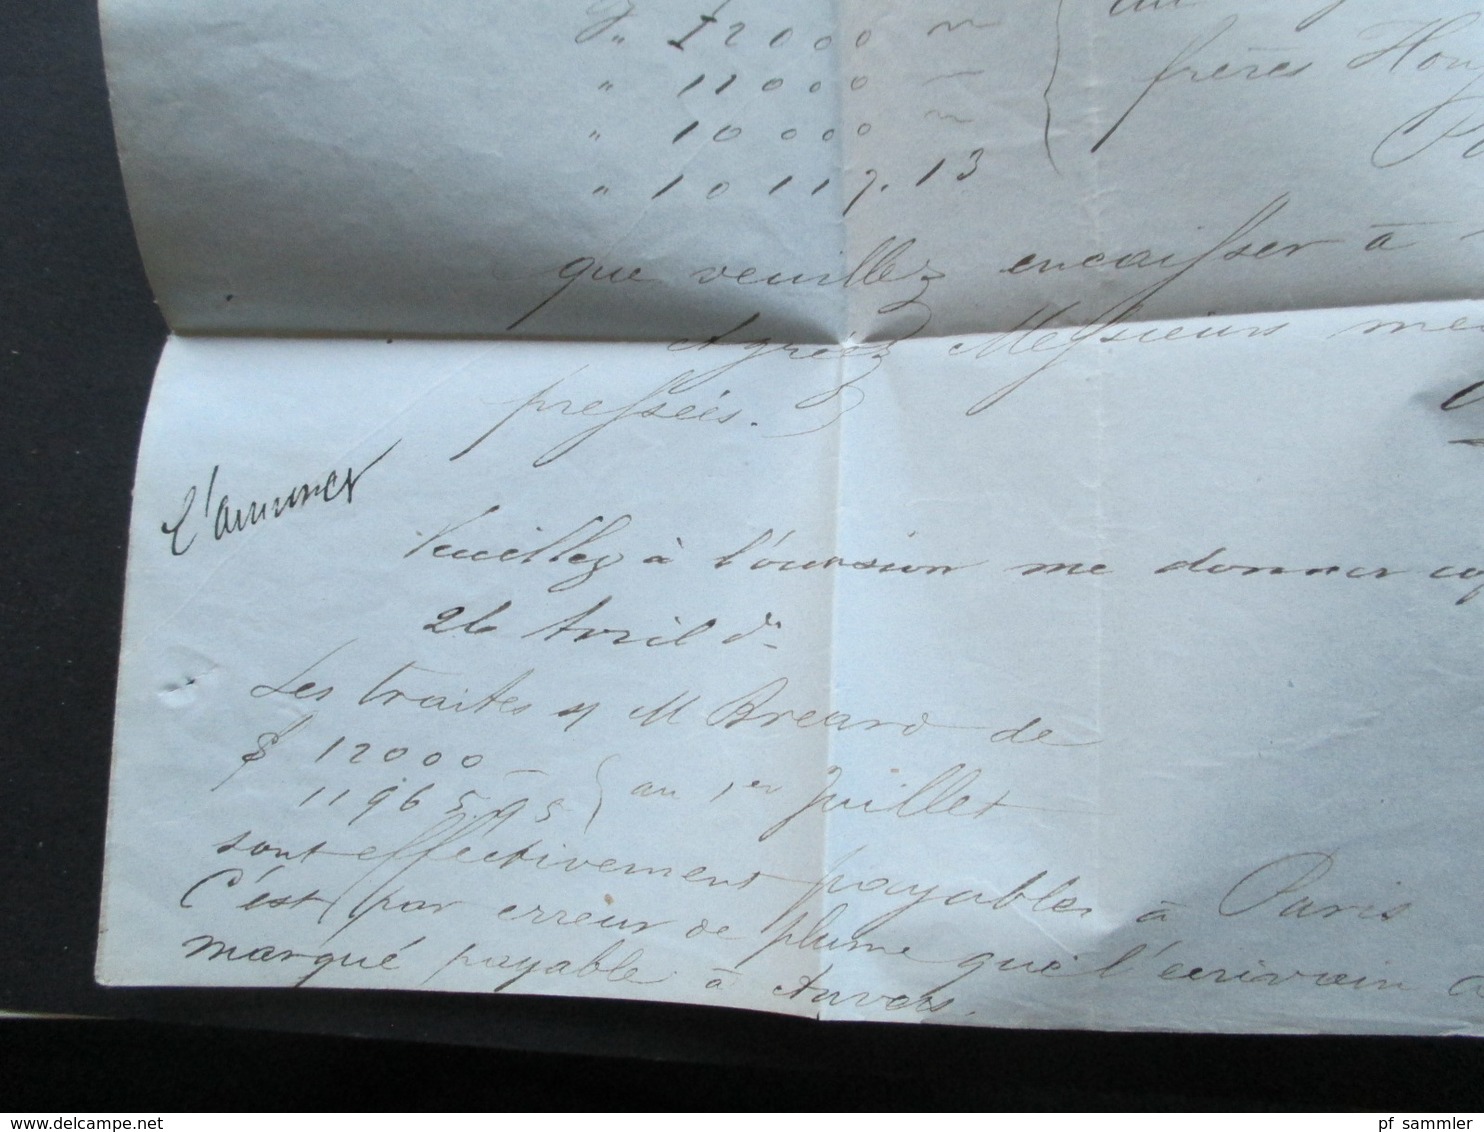 f" 12000 ~
" 11000 ~
" 10000 ~
" 10117.13
frères
que veuillez encaisser à
Agréez Messieurs me
pressées.
Veuillez à l'occasion me donner
26 Avril dr
Les traites s/ M Breard de
$ 12000 -
11965.95 } au 1er Juillet
sont effectivement payables à Paris
C'est par erreur de plume que l'écrivain a
marqué payable à Anvers.
www.delcampe.net
pf_sammler